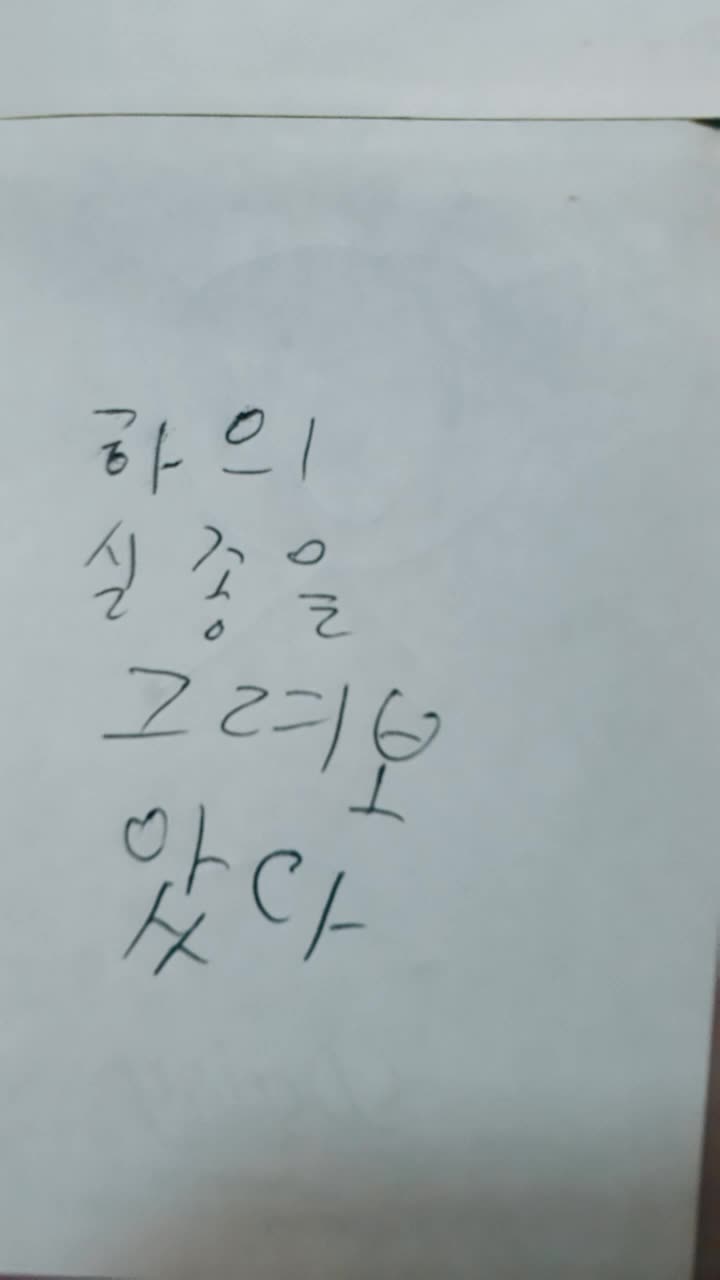 하의
실종을
그려보
았다